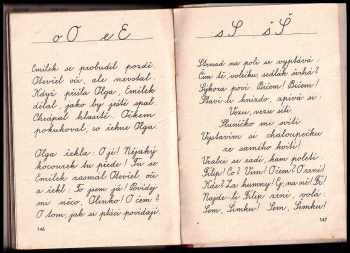 oO eE
Emilek se probudil pozdě.
Otevřel oči, ale nevstal.
Když přišla Olga, Emilek
dělal, jako by ještě spal.
Chrápal hlasitě. Očkem
pokukoval, co řekne Olga.
Olga řekla: O je! Nějaký
kocourek tu přede! Tu se
Emilek zasmál. Otevřel oči
a řekl: To jsem já! Povídej
mi něco, Olinko! O čem?
O tom, jak si ptáci povídají.
146
sS šŠ
Strnad na poli se vyptává:
Čím ti, volečku, sedlák
Sýkora poví: Bičem! Bičem!
Staví-li hnízdo, zpívá si:
Vozu, vezu síti
Sluníčko mi svítí
Vystavím si chaloupečku
ze samého kvítí.
Vrabci se radí, kam poletí:
Filip! Co? Vím! O čem? O zrní!
Kde? Za humny!
Najde-li Filip zrní, volá:
Sem, Šimku! Sem, Šimku!
147